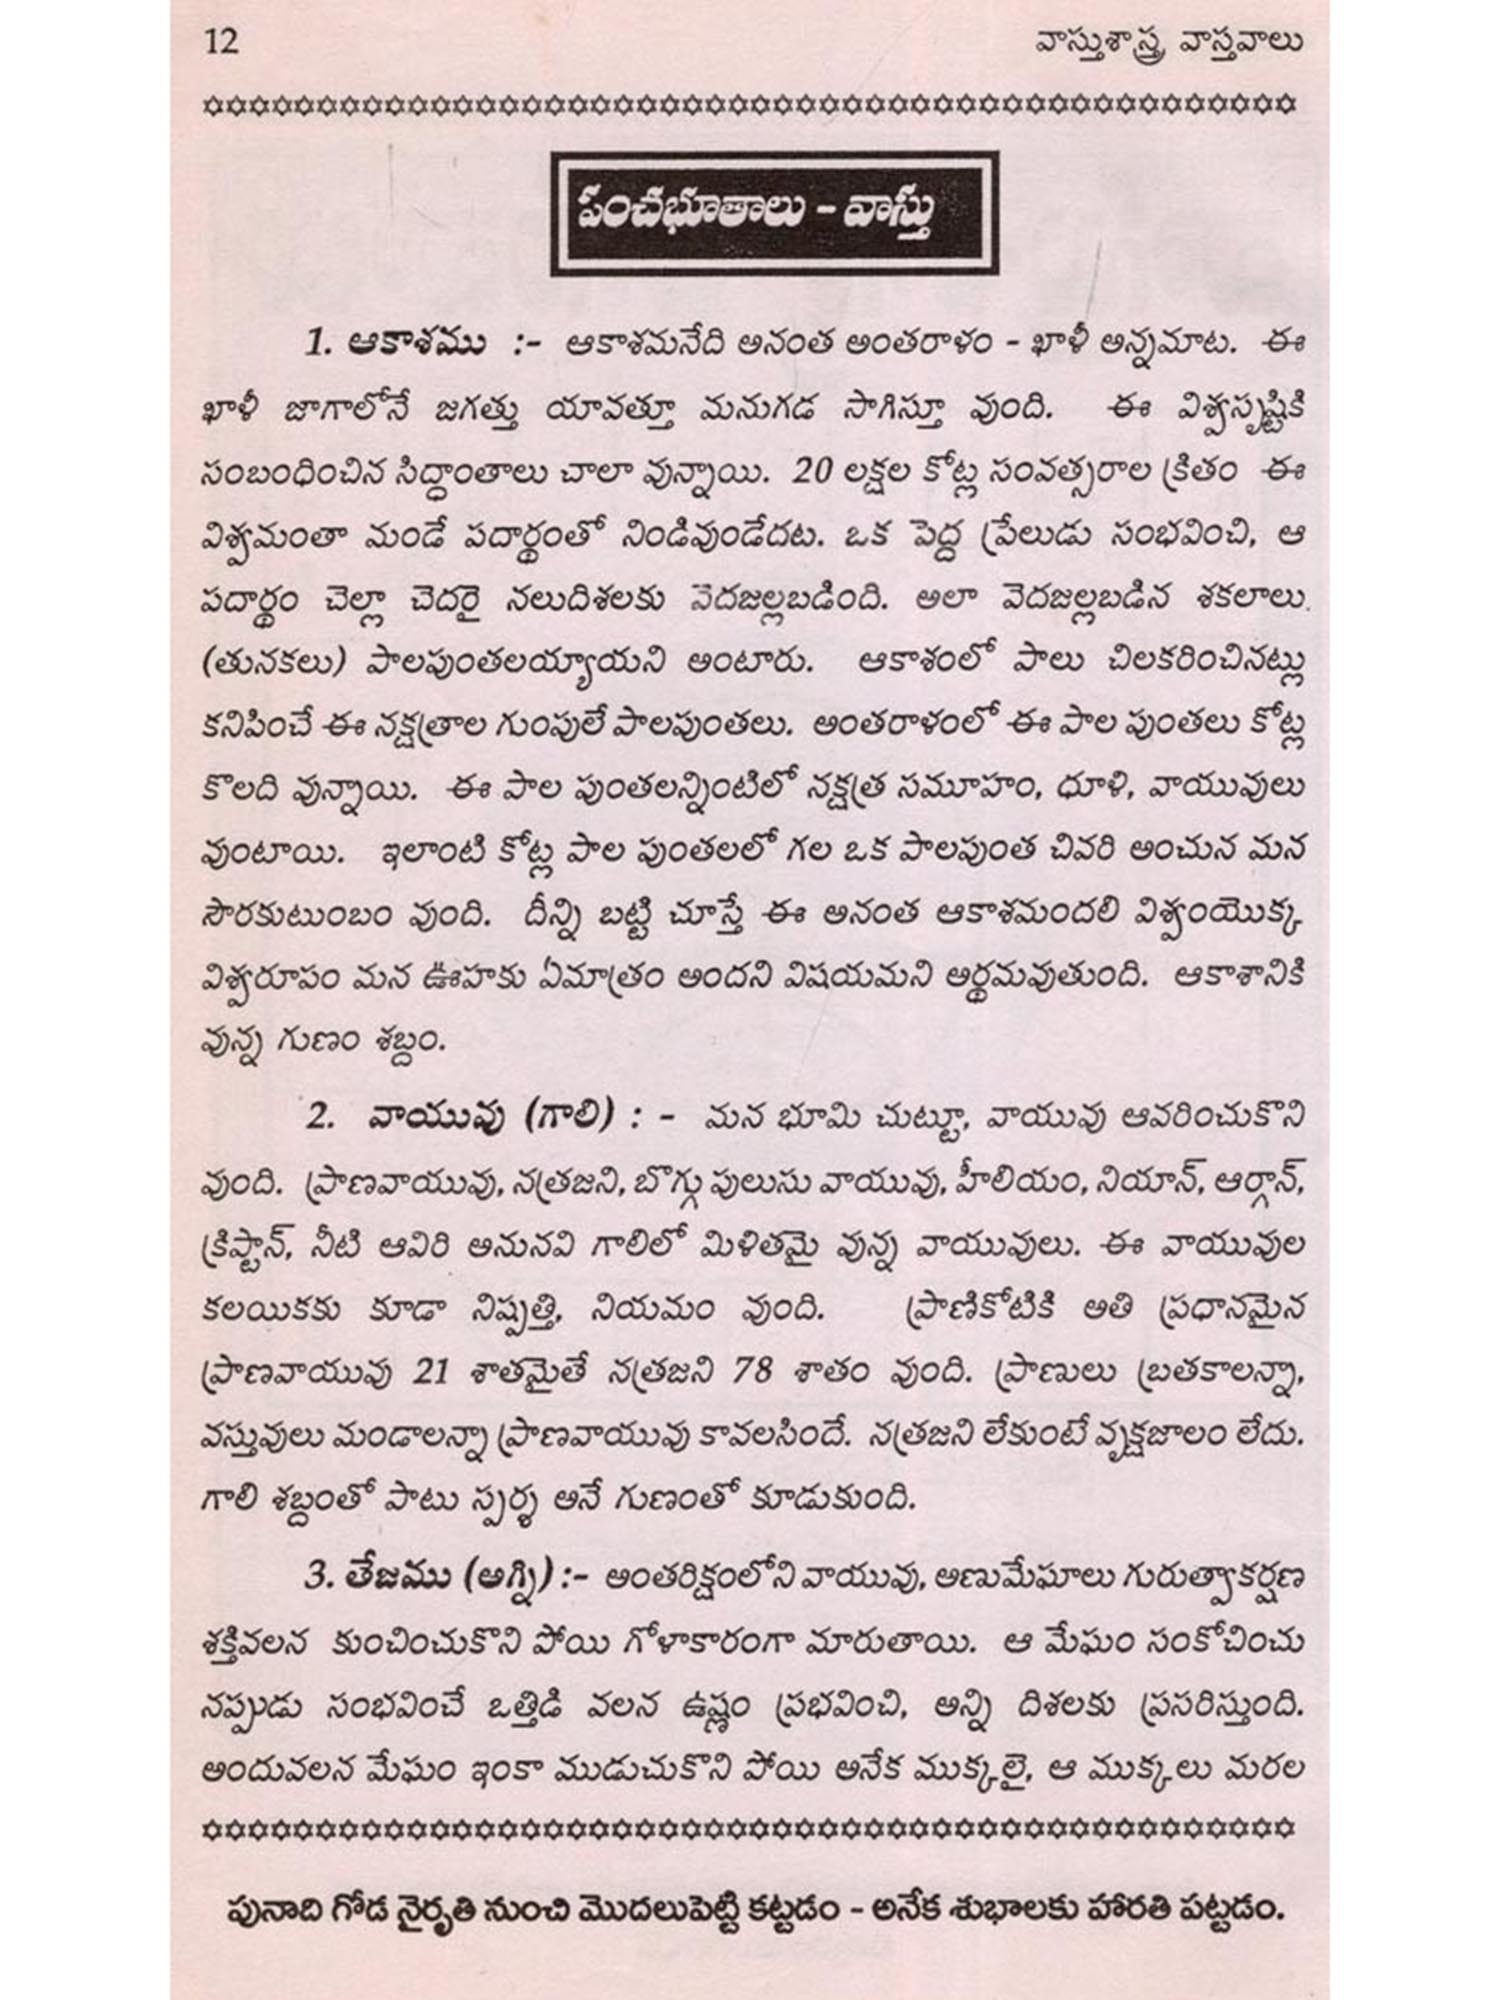 12 వాస్తుశాస్త్ర వాస్తవాలు
పంచభూతాలు - వాస్తు
1. ఆకాశము :- ఆకాశమనేది అనంత అంతరాళం - ఖాళీ అన్నమాట. ఈ
ఖాళీ జాగాలోనే జగత్తు యావత్తూ మనుగడ సాగిస్తూ వుంది. ఈ విశ్వసృష్టికి
సంబంధించిన సిద్ధాంతాలు చాలా వున్నాయి. 20 లక్షల కోట్ల సంవత్సరాల క్రితం ఈ
విశ్వమంతా మండే పదార్థంతో నిండివుండేదట. ఒక పెద్ద ప్రేలుడు సంభవించి, ఆ
పదార్థం చెల్లా చెదరై నలుదిశలకు వెదజల్లబడింది. అలా వెదజల్లబడిన శకలాలు
(తునకలు) పాలపుంతలయ్యాయని అంటారు. ఆకాశంలో పాలు చిలకరించినట్లు
కనిపించే ఈ నక్షత్రాల గుంపులే పాలపుంతలు. అంతరాళంలో ఈ పాల పుంతలు కోట్ల
కొలది వున్నాయి. ఈ పాల పుంతలన్నింటిలో నక్షత్ర సమూహం, ధూళి, వాయువులు
వుంటాయి. ఇలాంటి కోట్ల పాల పుంతలలో గల ఒక పాలపుంత చివరి అంచున మన
సౌరకుటుంబం వుంది. దీన్ని బట్టి చూస్తే ఈ అనంత ఆకాశమందలి విశ్వంయొక్క
విశ్వరూపం మన ఊహకు ఏమాత్రం అందని విషయమని అర్థమవుతుంది. ఆకాశానికి
వున్న గుణం శబ్దం.
2. వాయువు (గాలి) : - మన భూమి చుట్టూ, వాయువు ఆవరించుకొని
వుంది. ప్రాణవాయువు, నత్రజని, బొగ్గు పులుసు వాయువు, హీలియం, నియాన్, ఆర్గాన్,
క్రిప్టాన్, నీటి ఆవిరి అనునవి గాలిలో మిళితమై వున్న వాయువులు. ఈ వాయువుల
కలయికకు కూడా నిష్పత్తి, నియమం వుంది. ప్రాణికోటికి అతి ప్రధానమైన
ప్రాణవాయువు 21 శాతమైతే నత్రజని 78 శాతం వుంది. ప్రాణులు బ్రతకాలన్నా,
వస్తువులు మండాలన్నా ప్రాణవాయువు కావలసిందే. నత్రజని లేకుంటే వృక్షజాలం లేదు.
గాలి శబ్దంతో పాటు స్పర్శ అనే గుణంతో కూడుకుంది.
3. తేజము (అగ్ని) :- అంతరిక్షంలోని వాయువు, అణుమేఘాలు గురుత్వాకర్షణ
శక్తివలన కుంచించుకొని పోయి గోళాకారంగా మారుతాయి. ఆ మేఘం సంకోచించు
నప్పుడు సంభవించే ఒత్తిడి వలన ఉష్ణం ప్రభవించి, అన్ని దిశలకు ప్రసరిస్తుంది.
అందువలన మేఘం ఇంకా ముడుచుకొని పోయి అనేక ముక్కలై, ఆ ముక్కలు మరల
పునాది గోడ నైరృతి నుంచి మొదలుపెట్టి కట్టడం - అనేక శుభాలకు హారతి పట్టడం.